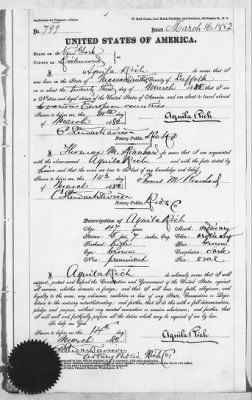 No. 799 Issued March 16, 1882
UNITED STATES OF AMERICA.
STATE OF New York
COUNTY OF Richmond
I, Aquila Rich do swear that I
was born in the State of Massachusetts County of Suffolk
on or about the Twenty third day of March
Native and loyal citizen of the United States of America, and am about to travel abroad
various European countries
Sworn to before me, this 14th day
of March 1882 Aquila Rich
C. Stewart Davison
Notary Public
I, Thomas M. do swear that I am acquainted
with the above-named Aquila Rich and with the facts stated by
him and the same are true to the best of my knowledge and belief.
Sworn to before me, this 14th day
of March 1882 Thomas M.
C. Stewart Davison
Notary Public
Description of Aquila Rich
Age: 47 years
Stature: 5 ft 7 inches, Eng.
Forehead: high
Eyes: brown
Nose: prominent
Mouth: ordinary
Chin: ordinary
Hair: brown
Complexion: dark
Face: oval
I, Aquila Rich do solemnly swear that I will
support, protect and defend the Constitution and Government of the United States against
all enemies, whether domestic or foreign; and that I will bear true faith, allegiance, and
loyalty to the same, any ordinance, resolution or law of any State, Convention or Legis-
lature to the contrary notwithstanding; and further, that I do this with a full determination,
pledge and purpose, without any mental reservation or evasion whatsoever; and further, that
I will well and faithfully perform all the duties which may be required of me by law.
So help me God.
Sworn to before me, this 14th day
of March 1882 Aquila Rich
C. Stewart Davison
Notary Public